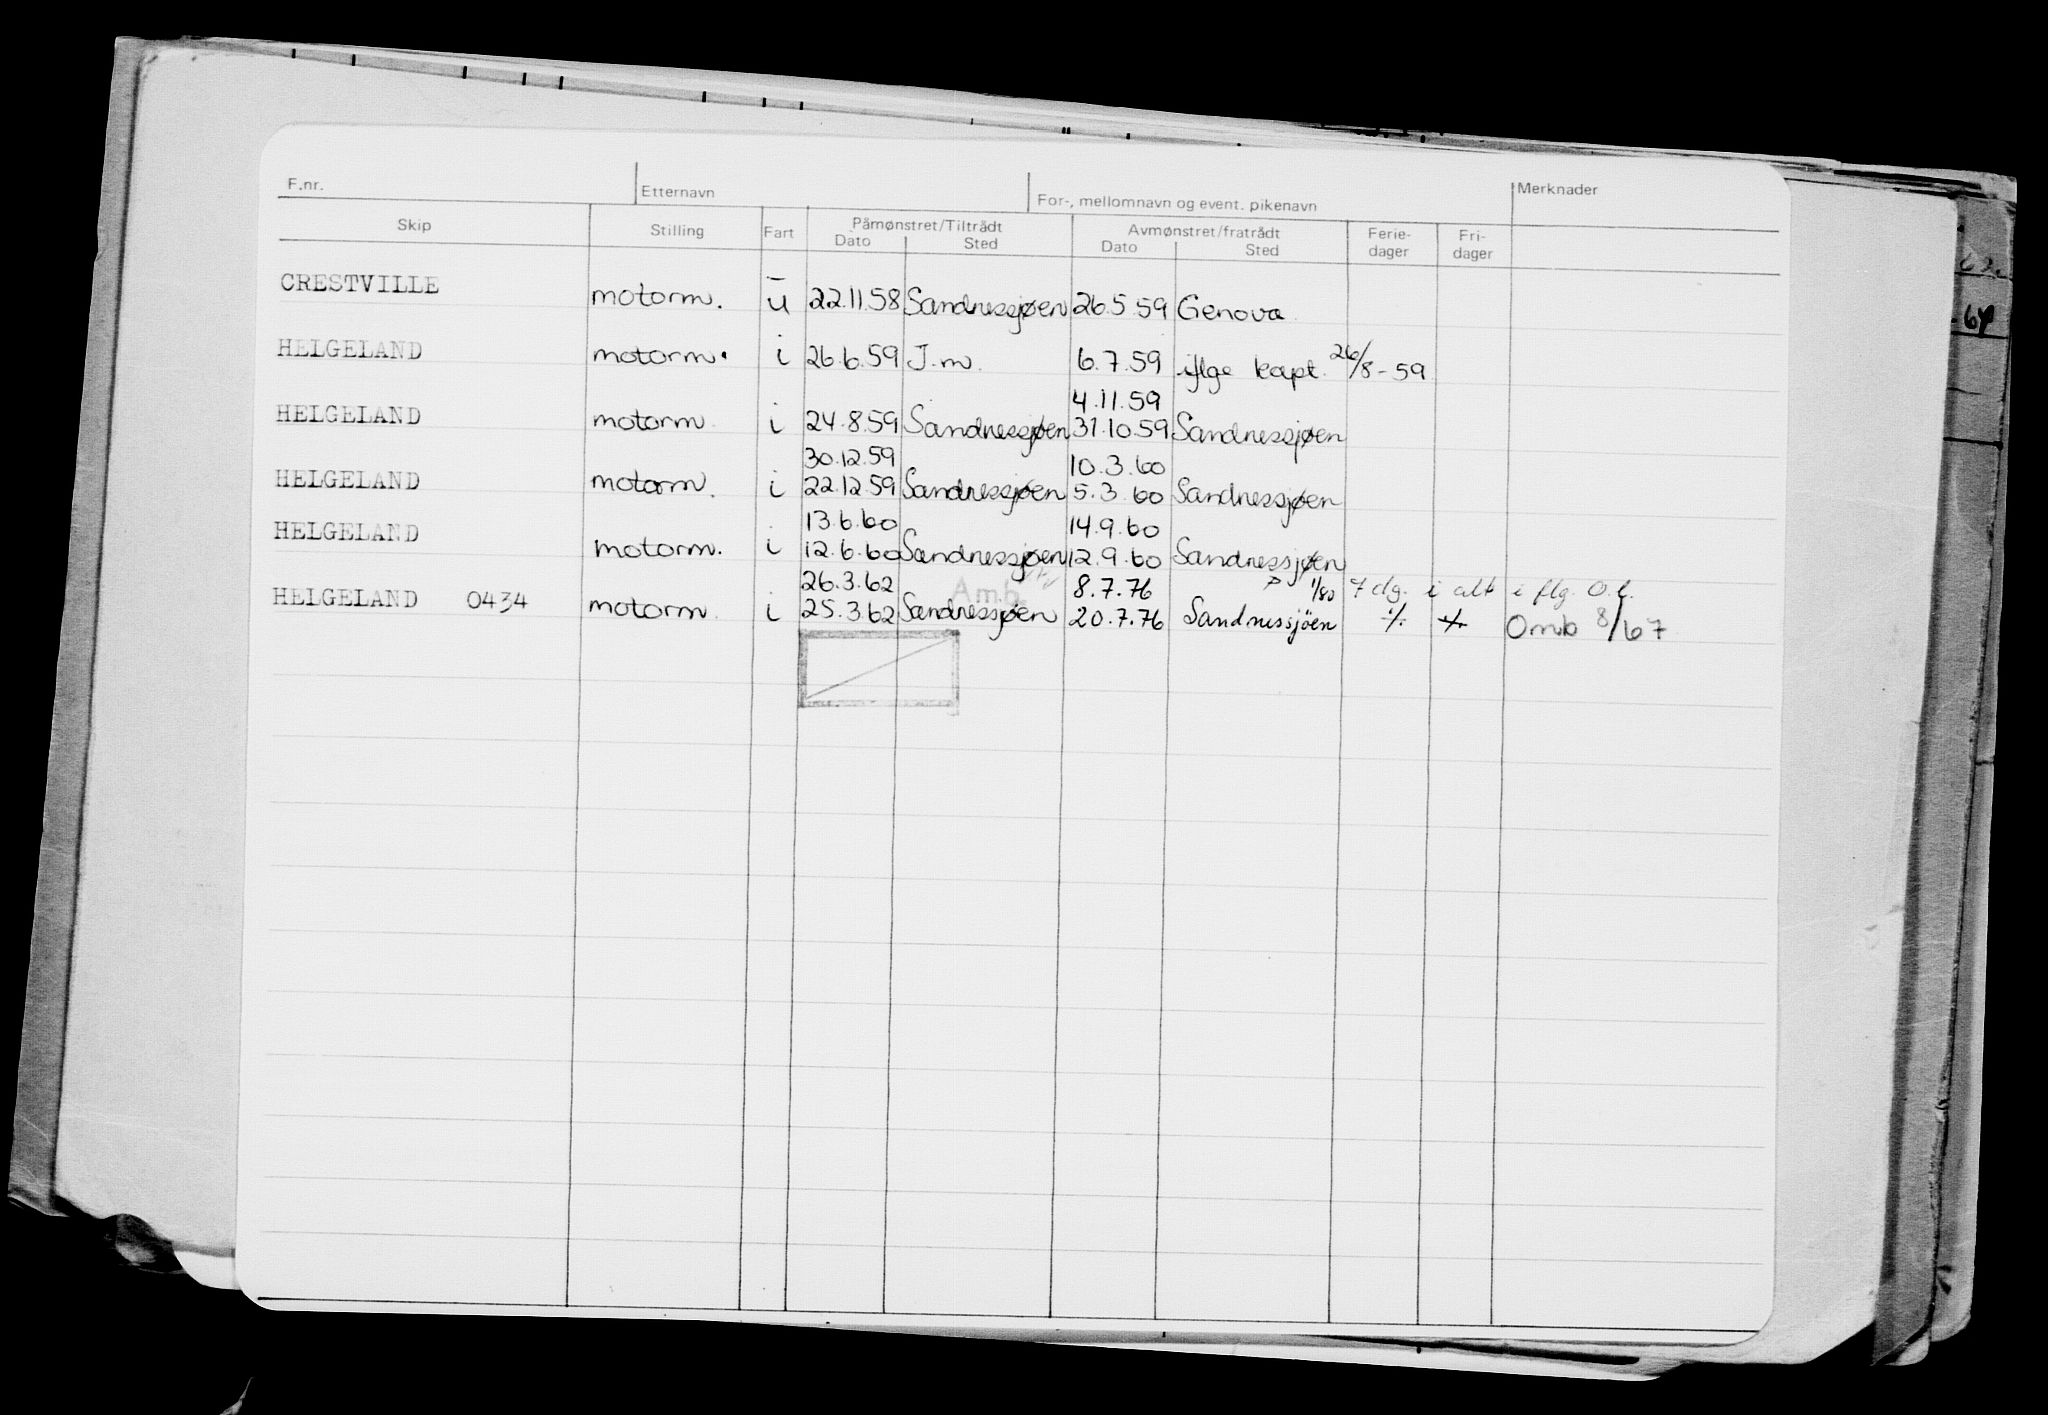 F.nr. Etternavn For-, mellomnavn og event. pikenavn Merknader
Skip Stilling Fart Påmønstret/Tiltrådt Avmønstret/fratrådt Ferie- Fri-
Dato Sted Dato Sted dager dager
CRESTVILLE motorm. u 22.11.58 Sandnessjøen 26.5.59 Genova
HELGELAND motorm. i 26.6.59 J.m. 6.7.59 iflge kapt. 26/8-59
4.11.59
HELGELAND motorm. i 24.8.59 Sandnessjøen 31.10.59 Sandnessjøen
30.12.59 10.3.60
HELGELAND motorm. i 22.12.59 Sandnessjøen 5.3.60 Sandnessjøen
13.6.60 14.9.60
HELGELAND motorm. i 12.6.60 Sandnessjøen 12.9.60 Sandnessjøen
26.3.62 Amb. 8.7.76 1/80 7 dg. i alt i flg. O.l.
HELGELAND 0434 motorm. i 25.3.62 Sandnessjøen 20.7.76 Sandnessjöen Omb 8/67